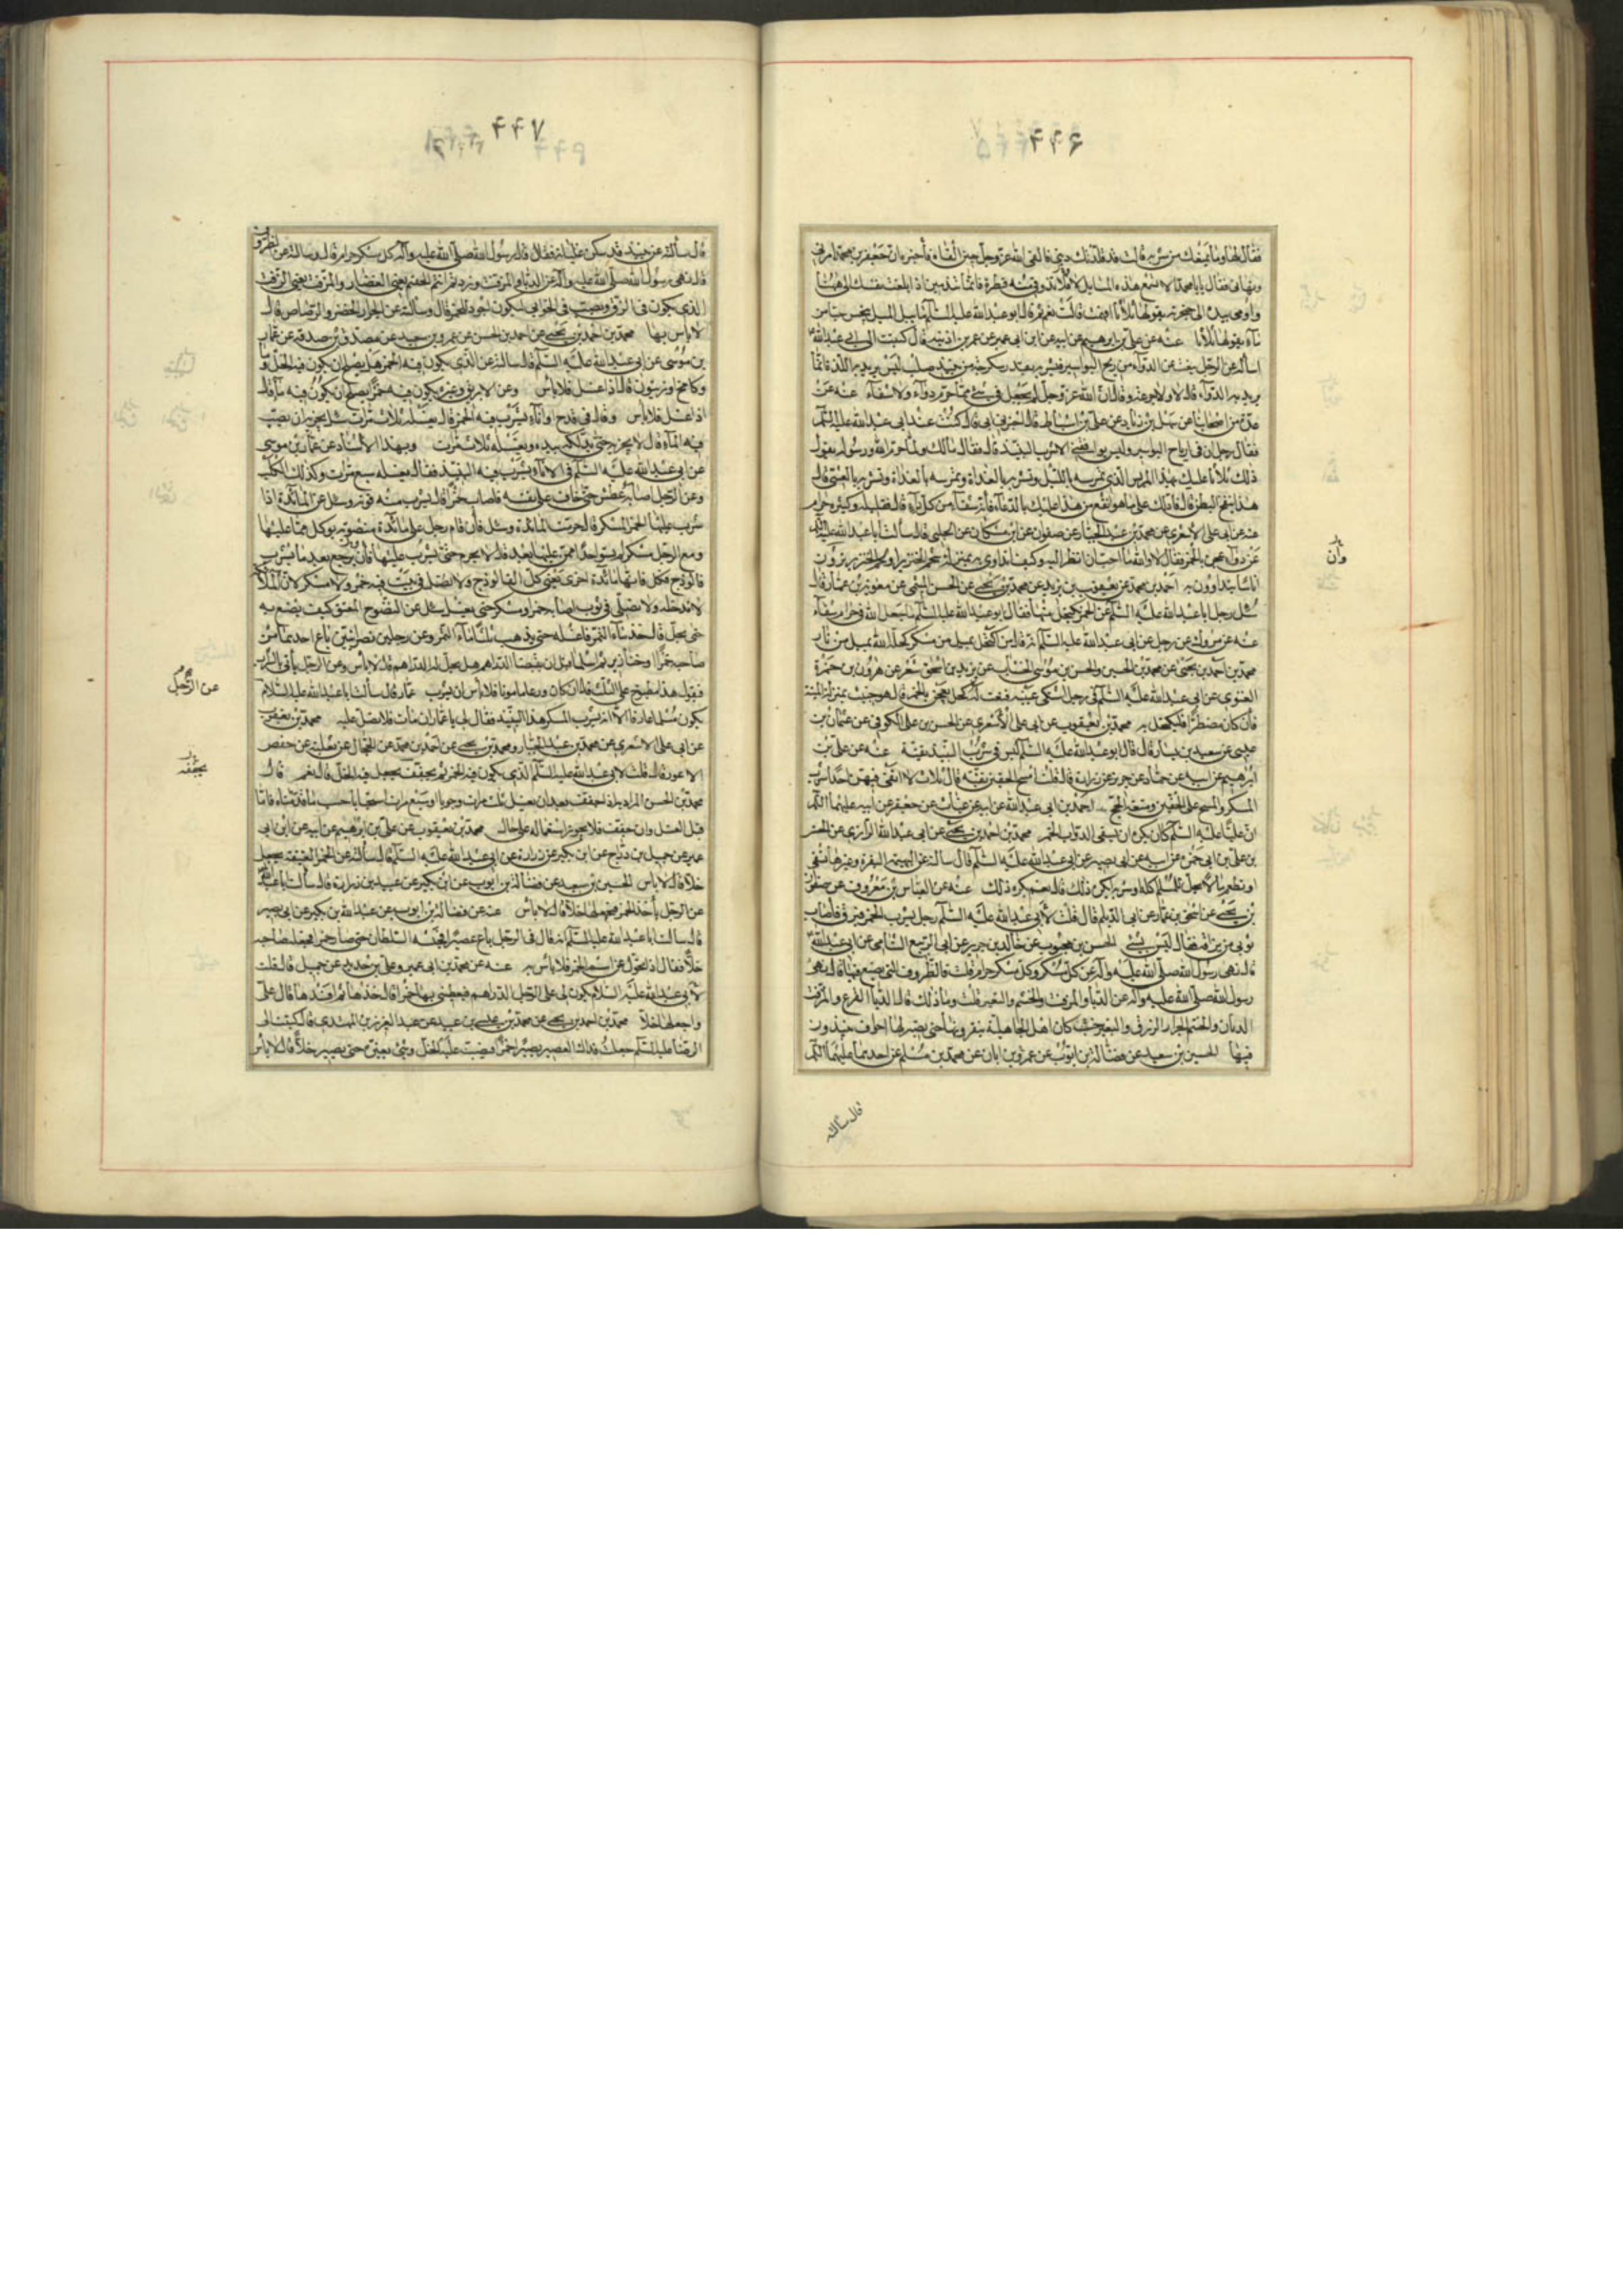 ۴۴۶
فقال لها وما يمنعك من شربه قالت قد قلدتك ديني فالقى الله عز وجل حين القاه فاخبره ان جعفر بن محمد امرني
ونهاني فقال يا با محمد الا تسمع هذه المسايل لا فلا تذوقي منه قطرة فانما تندمين اذا بلغت نفسك الى ههنا
واومى بيده الى حنجرته يقولها ثلاثا افهمت قالت نعم ثم قال ابو عبد الله عليه السلم ما يبل الميل ينجس حبا من
ماء يقولها ثلاثا عنه عن علي بن ابرهيم عن ابيه عن ابن ابي عمير عن عمر بن اذينه قال كتبت الى ابي عبد الله
اساله عن الرجل ينعت له الدواء من ريح البواسير فيشربه بقدر سكرجة من نبيذ صلب ليس يريد به اللذة فانما
يريد به الدواء قال لا ولا جرعة وقال ان الله عز وجل لم يجعل في شيء مما حرم دواء ولا شفاء عنه عن
عدة من اصحابنا عن سهل بن زياد عن علي بن اسباط قال اخبرني ابي قال كنت عند ابي عبد الله عليه السلم
فقال رجل ان في ارياح البواسير وليس يوافقني الا شرب النبيذ قال فقال مالك ولما حرم الله ورسوله يقول
ذلك ثلاثا عليك بهذا المريس الذي تمرسه بالليل وتشربه بالغداة وتمرسه بالغداة وتشربه بالعشي قال
هذا ينفخ البطن قال فادلك على ما هو انفع من هذا عليك بالدعاء فانه شفاء من كل داء قال فقليله وكثيره حرام
عنه عن ابي علي الاشعري عن محمد بن عبد الجبار عن صفوان عن ابن مسكان عن الحلبي قال سالت ابا عبد الله عليه السلم
عن دواء عجن بالخمر فقال لا والله ما احب ان انظر اليه وكيف اتداوى به بمنزلة شحم الخنزير او لحم الخنزير يرون
اناسا يتداوون به احمد بن محمد عن يعقوب بن يزيد عن محمد بن يحيى عن الحسن الميثمي عن معوية بن عمار قال
سئل رجل ابا عبد الله عليه السلم عن الخمر يكتحل منها فقال ابو عبد الله عليه السلم ما جعل الله في حرام شفاء
عنه عن مروك عن رجل عن ابي عبد الله عليه السلم انه قال من اكتحل بميل من مسكر كحله الله بميل من نار
محمد بن احمد بن يحيى عن محمد بن الحسين والحسن بن موسى الخشاب عن يزيد بن اسحق شعر عن هرون بن حمزة
الغنوي عن ابي عبد الله عليه السلم في رجل اشتكى عينيه فنعت له كحل يعجن بالخمر فقال هو خبيث بمنزلة الميتة
فان كان مضطرا فليكتحل به محمد بن يعقوب عن ابي علي الاشعري عن الحسن بن علي الكوفي عن عثمان بن
عيسى عن سعيد بن يسار قال قال ابو عبد الله عليه السلم ليس في شرب النبيذ تقية عنه عن علي بن
ابرهيم عن ابيه عن حماد عن حريز عن زرارة قال قلت امسح الخفين تقية قال ثلاث لا اتقي فيهن احدا شرب
المسكر والمسح على الخفين ومتعة الحج احمد بن ابي عبد الله عن ابيه عن غياث عن جعفر عن ابيه عليهما السلم
ان عليا عليه السلم كان يكره ان يسقى الدواب الخمر محمد بن احمد بن يحيى عن ابي عبد الله الرازي عن الحسن
بن علي بن ابي حمزة عن ابيه عن ابي بصير عن ابي عبد الله عليه السلم قال سالته عن البهيمة البقرة وغيرها تسقى
او تطعم ما لا يحل للمسلم اكله او شربه ايكره ذلك قال نعم يكره ذلك عنه عن العباس بن معروف عن صفوان
بن يحيى عن اسحق بن عمار عن ابي الديلم قال قلت لابي عبد الله عليه السلم رجل يشرب الخمر فبزق فاصاب
ثوبي من بزاقه فقال ليس بشيء الحسن بن محبوب عن خالد بن جرير عن ابي الربيع الشامي عن ابي عبد الله
قال نهى رسول الله صلى الله عليه واله عن كل مسكر وكل مسكر حرام قلت فالظروف التي يصنع فيها قال نهى
رسول الله صلى الله عليه واله عن الدبا والمزفت والحنتم والنقير قلت وما ذلك قال الدبا القرع والمزفت
الدنان والحنتم الجرار الزرق والنقير خشب كان اهل الجاهلية ينقرونها حتى يصير لها اجواف ينبذون
فيها الحسين بن سعيد عن فضالة بن ايوب عن عمر بن ابان عن محمد بن مسلم عن احدهما عليهما السلم
وان
قال سالته
۴۴۷
قال سالته عن نبيذ قد سكن غليانه فقال قال رسول الله صلى الله عليه واله كل مسكر حرام قال وسالته عن الظروف
قال نهى رسول الله صلى الله عليه واله عن الدبا والمزفت وزدتم انتم الحنتم يعني الغضار والمزفت يعني الزفت
الذي يكون في الزق ويصب في الخوابي ليكون اجود للخمر قال وسالته عن الجرار الخضر والرصاص قال
لا باس بها محمد بن احمد بن يحيى عن احمد بن الحسن عن عمرو بن سعيد عن مصدق بن صدقه عن عمار
بن موسى عن ابي عبد الله عليه السلم قال سالته عن الذي يكون فيه الخمر هل يصلح ان يكون فيه الخل او
وكامخ او زيتون قال اذا غسل فلا باس وعن الابريق وغيره يكون فيه خمر يصلح ان يكون فيه ماء قال
اذا غسل فلا باس وقال في قدح او اناء يشرب فيه الخمر قال يغسله ثلاث مرات سئل يجزيه ان يصب
فيه الماء قال لا يجزيه حتى يدلكه بيده ويغسله ثلاث مرات وبهذا الاسناد عن عمار بن موسى
عن ابي عبد الله عليه السلم في الاناء يشرب فيه النبيذ فقال يغسله سبع مرات وكذلك الكلب
وعن الرجل اصابه عطش حتى خاف على نفسه فاصاب خمرا قال يشرب منه قوته وسئل عن المائدة اذا
شرب عليها الخمر المسكر قال حرمت المائدة وسئل فان قام رجل على مائدة منصوبة يوكل مما عليها
ومع الرجل مسكر لم يسق احدا ممن عليها بعد قال لا يحرم حتى يشرب عليها فان يرجع بعد ما يشرب
فالوذج فكل فانها مائدة اخرى يعني كل الفالوذج ولا تصل في بيت فيه خمر ولا مسكر لان الملائكة
لا تدخله ولا تصلي في ثوب اصابه خمر او مسكر حتى يغسل سئل عن النضوح المعتق كيف يصنع به
حتى يحل قال خذ ماء التمر فاغله حتى يذهب ثلثا ماء التمر وعن رجلين نصرانيين باع احدهما من
صاحبه خمرا او خنازير ثم اسلما قبل ان يقبضا الدراهم هل يحل له الدراهم قال لا باس وعن الرجل ياتي بالشراب
فيقول هذا مطبوخ على الثلث قال ان كان ورعا مامونا فلا باس ان يشرب عمار قال سالت ابا عبد الله عليه السلام
يكون مسلما عارفا الا انه يشرب المسكر هذا النبيذ فقال لي يا عمار ان مات فلا تصل عليه محمد بن يعقوب
عن ابي علي الاشعري عن محمد بن عبد الجبار ومحمد بن يحيى عن احمد بن محمد عن الحجال عن ثعلبة عن حفص
الاعور قال قلت لابي عبد الله عليه السلم الذي يكون فيه الخمر ثم يجففه يجعل فيه الخل قال نعم قال
محمد بن الحسن المراد به اذا جففت بعد ان يغسل ثلث مرات وجوبا او سبع مرات استحبابا حسب ما قدمناه فاما
قبل الغسل وان جففت فلا يجوز استعماله على حال محمد بن يعقوب عن علي بن ابرهيم عن ابيه عن ابن ابي
عمير عن جميل بن دراج عن ابن بكير عن زرارة عن ابي عبد الله عليه السلم قال سالته عن الخمر العتيقة يجعل
خلا قال لا باس الحسين بن سعيد عن فضالة بن ايوب عن ابن بكير عن عبيد بن زرارة قال سالت ابا عبد الله
عن الرجل ياخذ الخمر فيجعلها خلا قال لا باس عنه عن فضالة بن ايوب عن عبد الله بن بكير عن ابي بصير
قال سالت ابا عبد الله عليه السلم انه قال في الرجل باع عصيرا فحبسه السلطان حتى صار خمرا فجعله صاحبه
خلا فقال اذا تحول عن اسم الخمر فلا باس به عنه عن محمد بن ابي عمير وعلي بن حديد عن جميل قال قلت
لابي عبد الله عليه السلام يكون لي على الرجل الدراهم فيعطيني بها خمرا قال خذها ثم افسدها قال علي
واجعلها خلا محمد بن احمد بن يحيى عن محمد بن عيسى بن عبيد عن عبد العزيز بن المهتدي قال كتبت الى
الرضا عليه السلم جعلت فداك العصير يصير خمرا فيصب عليه الخل وشيء يغيره حتى يصير خلا قال لا باس
عن الرجل
يجففه